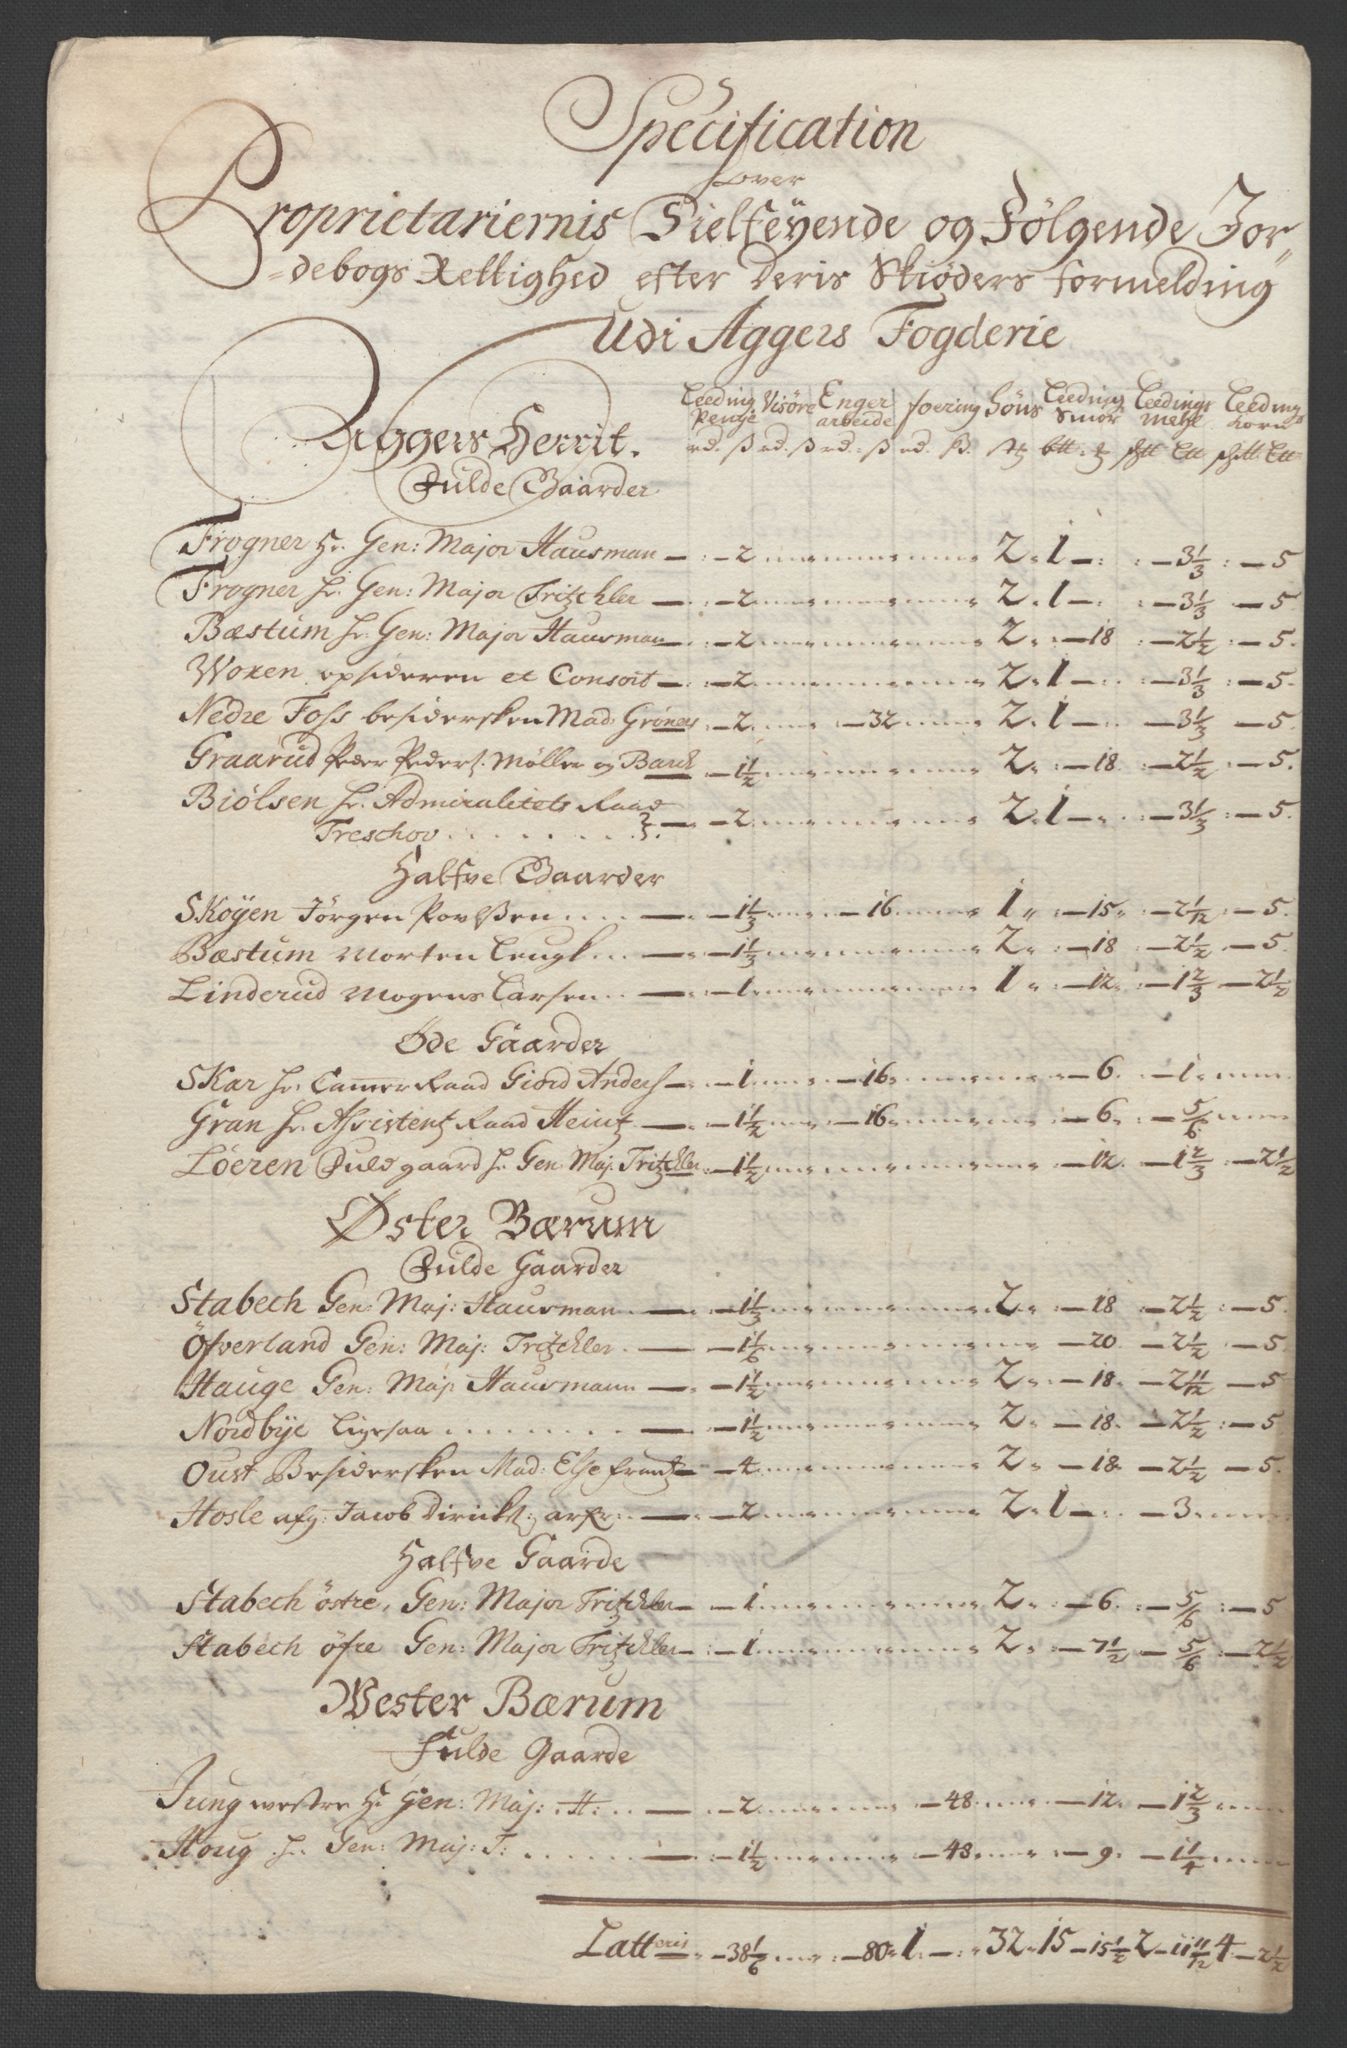 Specification
over
Proprietariernis Sielfeÿende og Følgende Jor„
„debogs Rettighed efter deris Skiøders formelding
Udi Aggers Fogderie
Leeding Penge Visøre Enger arbeide foering Høns Leeding Smör Leedings mehl Leeding Korn
Aggers Herrit. rd. ß rd. ß rd. ß rd. ß.
Fulde Gaarder
Frogner Hr. Gen: Major Hausman — : — 2 2 „ 1 — : : — 3 1/3 : — 5
Frogner Hr. Gen: Major Tritzchler — : — 2 2 „ 1 — : : — 3 1/3 — 5.
Bæstum Hr. Gen: Major Hausman — : — 2 2 „ : — 18 : — 2 1/2 : — 5.
Woxen opsideren et Consort — : — 2 2 „ 1 — : — 3 1/3 : — 5.
Nedre Foss besidersken Mad. Grøners — 2 — 32 2 „ 1 — : — 3 1/3 — 5.
Graarud Peder Peders. Møller og Barck — 1 1/2 2 „ : — 18 — 2 1/2 : — 5.
Biölsen Hr. Admiralitets Raad
Treschov — : — 2 2 „ 1 — : — 3 1/3 : — 5.
Halfve Gaarder
Skøyen Jörgen Povelßen — : — 1 1/3 — 16 1 „ : — 15 „ — 2 1/12 : — 5.
Bæstum Morten Leugk — : — 1 1/3 2 „ : — 18 — 2 1/2 : — 5.
Linderud Mogens Larsen — : — 1 1 „ : — 12 „ : — 1 2/3 — 2 1/2
Öde Gaarder
Skar Hr. Camer Raad Giord Anders — : — 1 — 16 — 6. : — 1
Gran Hr. Assistentz Raad Heintz — : — 1 1/2 — 16 — 6. : — 5/6
Löeren Fuld gaard Hr. Gen: Maj: Tritzchler : — 1 1/2 — 12. — 1 2/3 : — 2 1/2
Øster Bærum
Fulde Gaarder
Stabech Gen: Maj: Hausman — : — 1 1/3 2 „ : — 18 — 2 1/2 : — 5.
Öfverland Gen: Maj: Tritzchler — : — 1 1/6 — 20. — 2 1/2 : — 5
Hauge Gen: Maj: Hausmann — : — 1 1/2 2 „ : — 18. — 2 11/12 — 5
Nordbÿe Ligesaa — : — 1 1/2 2 „ : — 18. : — 2 1/2 : — 5
Oust Besidersken Mad: Else Frantz — 4 2 „ : — 18 — 2 1/2 : — 5.
Hosle afg: Jacob Diricks: arfr: — : — 2 2 „ 1 — : — 3
Halfve Gaarde
Stabech östre, Gen: Major Tritzchler — — 1 2 „ : — 6. : — 5/6 : — 5
Stabech öfre Gen: Major Tritzchler — : — 1 2 „ : — 7 1/2 — 5/6 : — 2 1/2
Wester Bærum
Fulde Gaarde
Jung westre Hr. Gen: Maj: H: — : — 2 — 48 — 12. — 1 2/3
Houg Hr. Gen: Maj: T: — : — 1 1/2 — 48 — 9. — 1 1/4
Latteris — 38 1/6 : — 80 „ 1 — : 32 „ 15 — 15 1/2 2 — 11 11/12 4 — 2 1/2